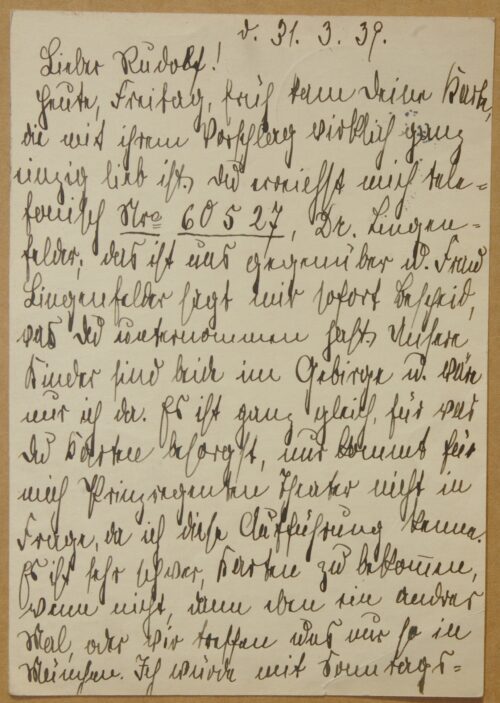 d. 31. 3. 39.
Lieber Rudolf!
Heute, Freitag, früh kam Deine Karte,
die mit ihrem Vorschlag wirklich ganz
einzig lieb ist. Du erreichst mich tele-
fonisch Nro 60527, Dr. Lingen-
felder; das ist uns gegenüber u. Frau
Lingenfelder sagt mir sofort bescheid,
was Du unternommen hast. Unsere
Kinder sind beide im Gebirge u. wäre
nur ich da. Es ist ganz gleich, für was
Du Karten besorgst, nur kommt für
mich Prinzregenten Theater nicht in
Frage, da ich diese Aufführung kenne.
Es ist sehr schwer, Karten zu bekommen,
wenn nicht, dann eben ein andres
Mal, oder wir treffen uns nur so in
München. Ich würde mit Sonntags-